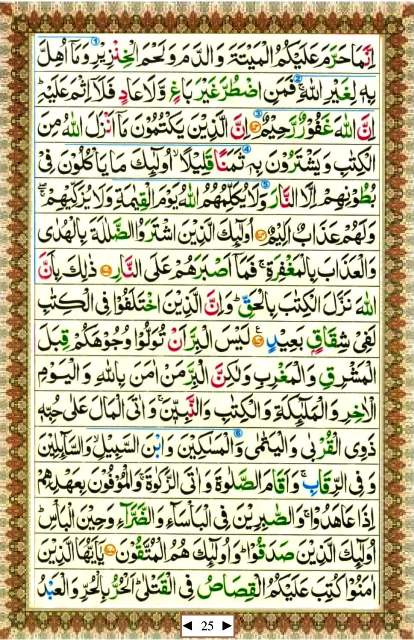 اِنَّمَا حَرَّمَ عَلَيۡكُمُ الۡمَيۡتَةَ وَالدَّمَ وَلَحۡمَ الۡخِنۡزِيۡرِ وَمَآ اُهِلَّ
بِهٖ لِغَيۡرِ اللّٰهِ‌ۚ فَمَنِ اضۡطُرَّ غَيۡرَ بَاغٍ وَّلَا عَادٍ فَلَآ اِثۡمَ عَلَيۡهِ‌ؕ
اِنَّ اللّٰهَ غَفُوۡرٌ رَّحِيۡمٌ اِنَّ الَّذِيۡنَ يَكۡتُمُوۡنَ مَآ اَنۡزَلَ اللّٰهُ مِنَ
الۡکِتٰبِ وَيَشۡتَرُوۡنَ بِهٖ ثَمَنًا قَلِيۡلًاۙ اُولٰٓٮِٕكَ مَا يَاۡكُلُوۡنَ فِىۡ
بُطُوۡنِهِمۡ اِلَّا النَّارَ وَلَا يُکَلِّمُهُمُ اللّٰهُ يَوۡمَ الۡقِيٰمَةِ وَلَا يُزَکِّيۡهِمۡۖۚ
وَلَهُمۡ عَذَابٌ اَ لِيۡمٌ اُولٰٓٮِٕكَ الَّذِيۡنَ اشۡتَرَوُا الضَّلٰلَةَ بِالۡهُدٰى
وَالۡعَذَابَ بِالۡمَغۡفِرَةِ‌ۚ فَمَآ اَصۡبَرَهُمۡ عَلَى النَّارِ ذٰلِكَ بِاَنَّ
اللّٰهَ نَزَّلَ الۡکِتٰبَ بِالۡحَقِّؕ وَاِنَّ الَّذِيۡنَ اخۡتَلَفُوۡا فِى الۡكِتٰبِ
لَفِىۡ شِقَاقٍۢ بَعِيۡدٍ لَيۡسَ الۡبِرَّ اَنۡ تُوَلُّوۡا وُجُوۡهَكُمۡ قِبَلَ
الۡمَشۡرِقِ وَ الۡمَغۡرِبِ وَلٰـكِنَّ الۡبِرَّ مَنۡ اٰمَنَ بِاللّٰهِ وَالۡيَوۡمِ
الۡاٰخِرِ وَالۡمَلٰٓٮِٕکَةِ وَالۡكِتٰبِ وَالنَّبِيّٖنَ‌ۚ وَاٰتَى الۡمَالَ عَلٰى حُبِّهٖ
ذَوِى الۡقُرۡبٰى وَالۡيَتٰمٰى وَالۡمَسٰكِيۡنَ وَابۡنَ السَّبِيۡلِۙ وَالسَّآٮِٕلِيۡنَ
وَفِى الرِّقَابِ‌ۚ وَاَقَامَ الصَّلٰوةَ وَاٰتَى الزَّکٰوةَ‌ۚ وَالۡمُوۡفُوۡنَ بِعَهۡدِهِمۡ
اِذَا عٰهَدُوۡا‌ۚ وَالصّٰبِرِيۡنَ فِى الۡبَاۡسَآءِ وَالضَّرَّآءِ وَحِيۡنَ الۡبَاۡسِؕ
اُولٰٓٮِٕكَ الَّذِيۡنَ صَدَقُوۡاؕ وَاُولٰٓٮِٕكَ هُمُ الۡمُتَّقُوۡنَ يٰٓاَيُّهَا الَّذِيۡنَ
اٰمَنُوۡا كُتِبَ عَلَيۡكُمُ الۡقِصَاصُ فِى الۡقَتۡلٰىؕ الۡحُرُّ بِالۡحُـرِّ وَالۡعَبۡدُ
25